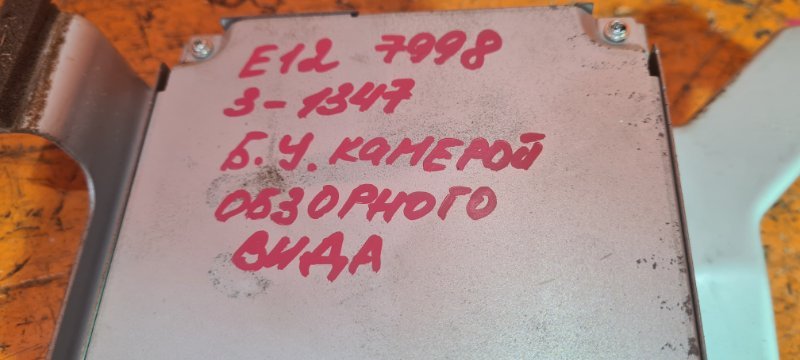 E12 7998
3-1347
Б.У. КАМЕРОЙ
ОБЗОРНОГО
ВИДА